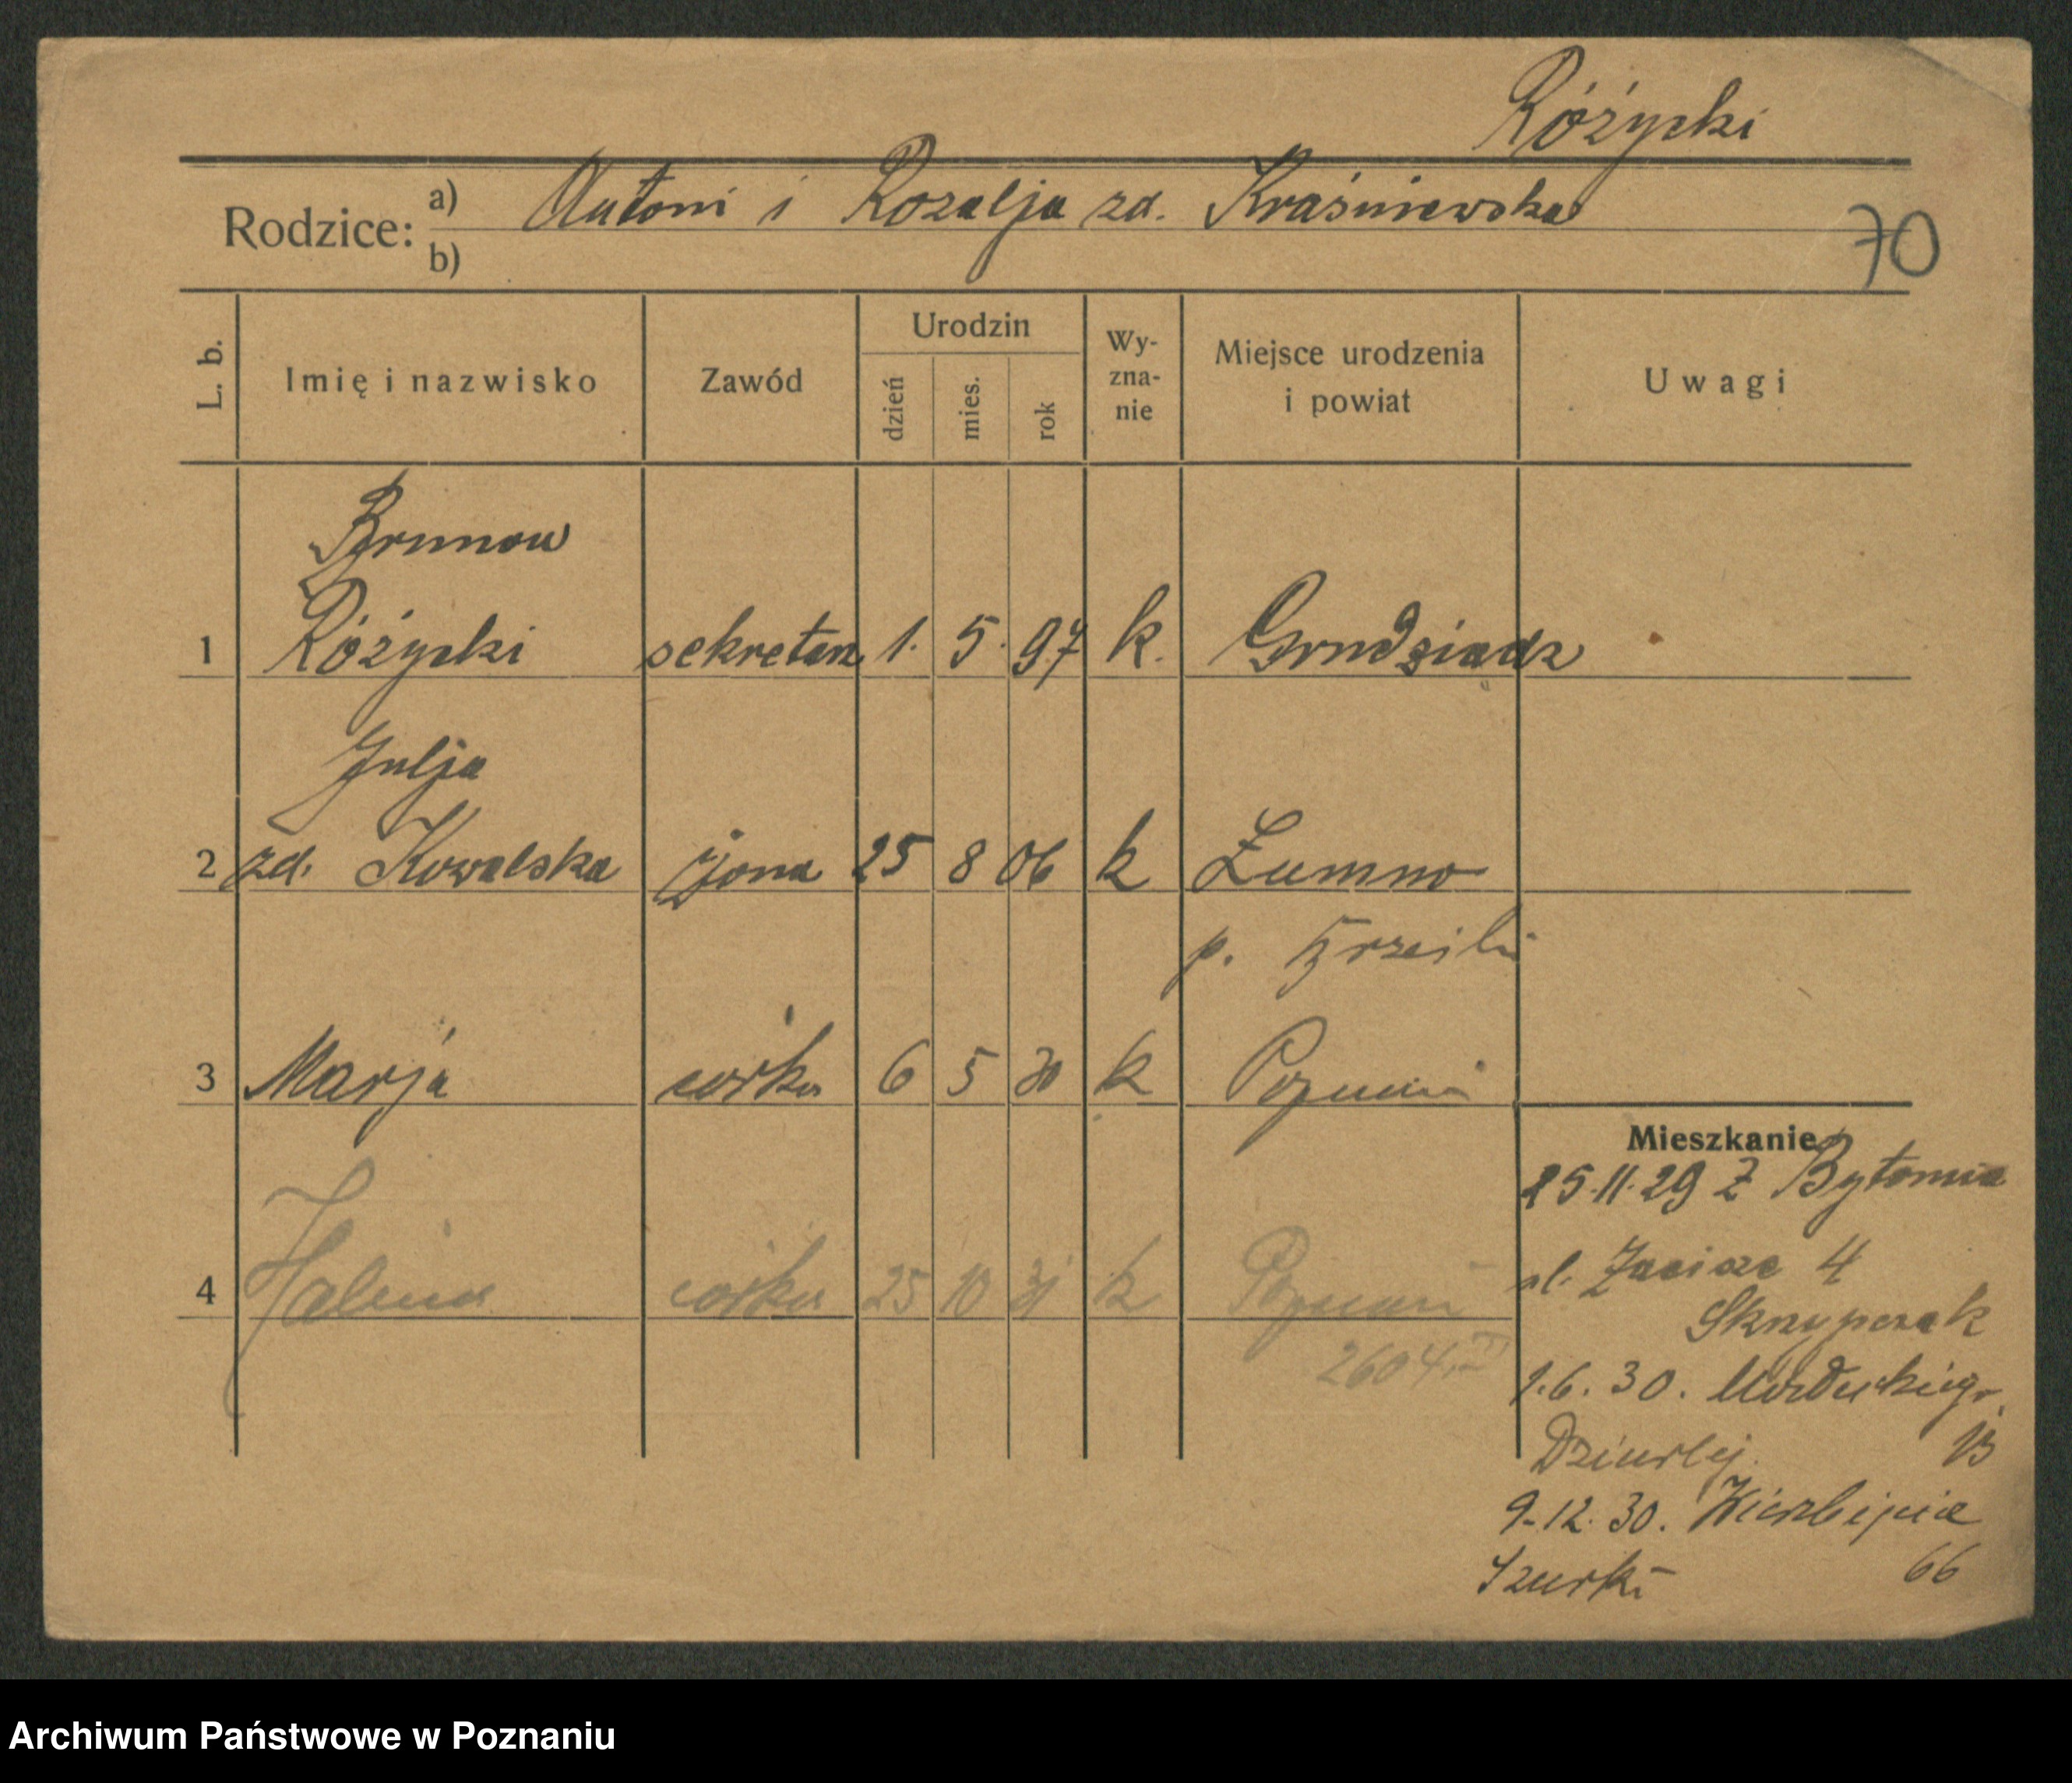 Różycki
Rodzice: a) Antoni i Rozalja zd. Kraśniewska
b)
70
L. b. Imię i nazwisko Zawód Urodzin dzień mies. rok Wy-zna-nie Miejsce urodzenia i powiat Uwagi
Brunon
1 Różycki sekretarz 1. 5. 97 k. Grudziądz
Julja
2 zd. Kowalska żona 25 8 06 k
p.
3 Marja córka 6 5 30 k Poznań
Mieszkanie
25.11.29 z Bytomia
4 Halina córka 25 10 31 k Poznań
ul. Zacisze 4
Skrzypczak
2604
1.6.30.
13
9.12.30. Wierzbięcice
66
Archiwum Państwowe w Poznaniu